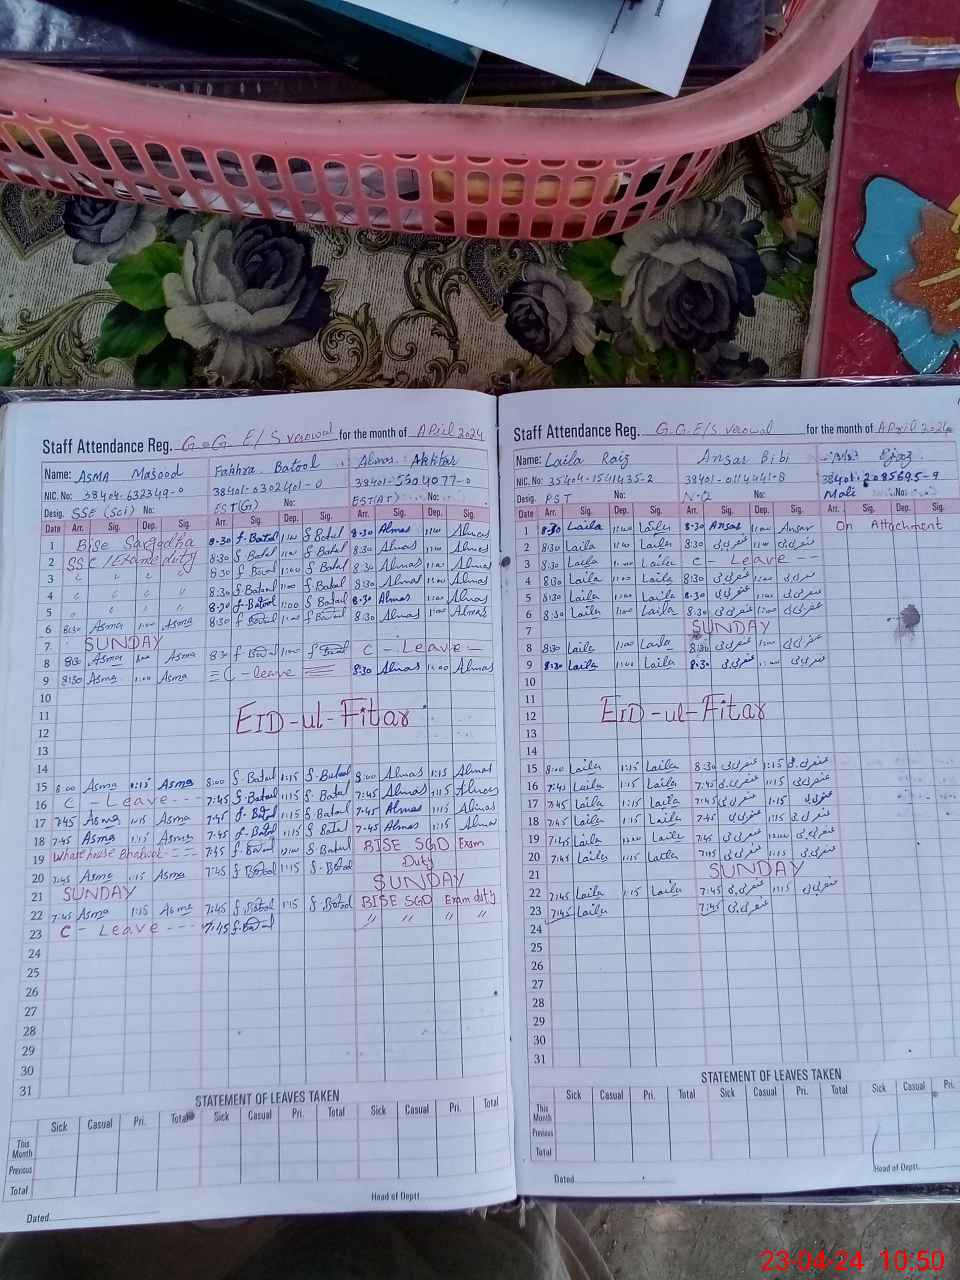 Staff Attendance Reg. G.G E/S verowal for the month of April 2024
Name: Asma Masood Fakhra Batool Almas Akhtar
NIC. No: 38404-632349-0 38401-0302401-0 No: 38401-5204077-0 No:
Desig. SSE (Sci) No: EST(G) No: EST(AT) No:
Date Arr. Sig. Dep. Sig. Arr. Sig. Dep. Sig. Arr. Sig. Dep. Sig.
1 Bise Sargodha 8-30 f-Batool 11:00 f Batool 8-30 Almas 11:00 Almas
2 SSC / Exame duty 8:30 f Batool 11:00 f Batool 8:30 Almas 11:00 Almas
3 " " " " 8:30 f Batool 11:00 f Batool 8:30 Almas 11:00 Almas
4 " " " " 8:30 f Batool 11:00 f Batool 8:30 Almas 11:00 Almas
5 " " " " 8-30 f-Batool 11:00 f Batool 8-30 Almas 11:00 Almas
6 8:30 Asma 11:00 Asma 8:30 f Batool 11:00 f Batool 8:30 Almas 11:00 Almas
7 SUNDAY
8 8:30 Asma Asma 8:30 f Batool 11:00 f Batool C - Leave -
9 8:30 Asma 11:00 Asma C - leave 8:30 Almas 11:00 Almas
10
11 EID-ul-Fitar
12
13
14
15 8:00 Asma 1:15 Asma 8:00 f-Batool 1:15 f-Batool 8:00 Almas 1:15 Almas
16 C - Leave - - - 7:45 f-Batool 1:15 f Batool 7:45 Almas 1:15 Almas
17 7-45 Asma 1:15 Asma 7-45 f-Batool 1:15 f Batool 7-45 Almas 1:15 Almas
18 7:45 Asma 1:15 Asma 7-45 f-Batool 1:15 f Batool 7-45 Almas 1:15 Almas
19 - - - - 7:45 f Batool 12:00 f Batool BISE SGD Exam
20 7:45 Asma 1:15 Asma 7:45 f Batool 1:15 f-Batool Duty
21 SUNDAY SUNDAY
22 7:45 Asma 1:15 Asma 7:45 f-Batool 1:15 f Batool BISE SGD Exam duty
23 C - Leave - - - 7:45 f-Batool " " " "
24
25
26
27
28
29
30
31
STATEMENT OF LEAVES TAKEN
Sick Casual Pri. Total Sick Casual Pri. Total Sick Casual Pri. Total
This Month
Previous
Total
Head of Deptt
Dated
Staff Attendance Reg. G.G.E/S verowal for the month of April 2024
Name: Laila Raiz Ansar Bibi Ejaz
NIC. No: 35404-1541435-2 38401-0114441-8 38401-2085695-9
Desig. PST No: N.Q No: Mali
Date Arr. Sig. Dep. Sig. Arr. Sig. Dep. Sig. Arr. Sig. Dep. Sig.
1 8-30 Laila 11:00 Laila 8-30 Ansar 11:00 Ansar On Attachment
2 8:30 Laila 11:00 Laila 8:30 11:00
3 8:30 Laila 11:00 Laila C - Leave - - -
4 8:30 Laila 11:00 Laila 8:30 11:00
5 8:30 Laila 11:00 Laila 8-30 11:00
6 8:30 Laila 11:00 Laila 8:30 11:00
7 SUNDAY
8 8:30 Laila 11:00 Laila 8:30 11:00
9 8:30 Laila 11:00 Laila 8:30 11:00
10
11 EID-ul-Fitar
12
13
14
15 8:00 Laila 1:15 Laila 8:30 1:15
16 7:45 Laila 1:15 Laila 7:45 1:15
17 7-45 Laila 1:15 Laila 7:45 1:15
18 7:45 Laila 1:15 Laila 7:45 1:15
19 7:45 Laila 12:00 Laila 7:45 12:00
20 7:45 Laila 1:15 Laila 7:45 1:15
21 SUNDAY
22 7:45 Laila 1:15 Laila 7:45 1:15
23 7:45 Laila 7:45
24
25
26
27
28
29
30
31
STATEMENT OF LEAVES TAKEN
Sick Casual Pri. Total Sick Casual Pri. Total Sick Casual Pri.
This Month
Previous
Total
Head of Deptt
Dated
23-04-24 10:50